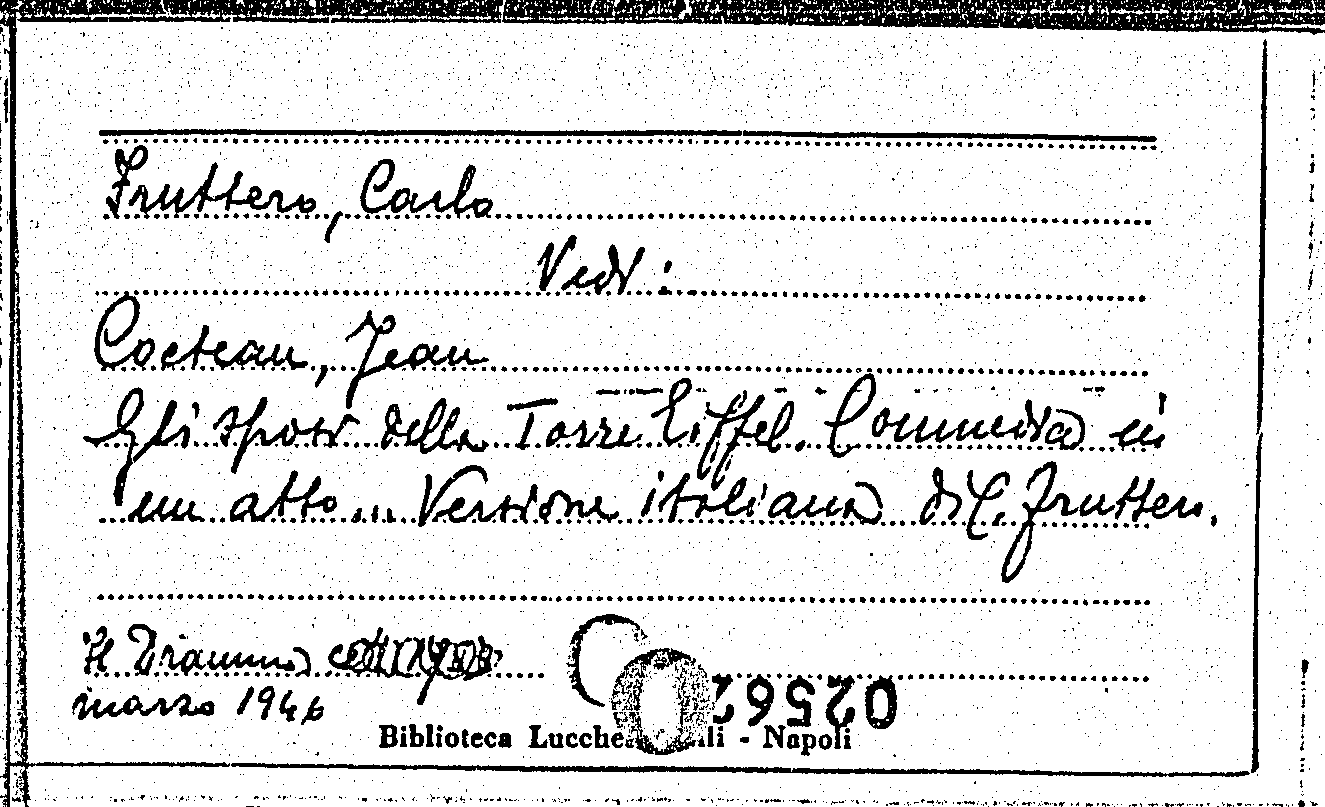 Fruttero, Carlo
Vedi:
Cocteau, Jean
Gli sposi della Torre Eiffel. Commedia in
un atto... Versione italiana di C. Fruttero.
Il Dramma
marzo 1946
Biblioteca - Napoli